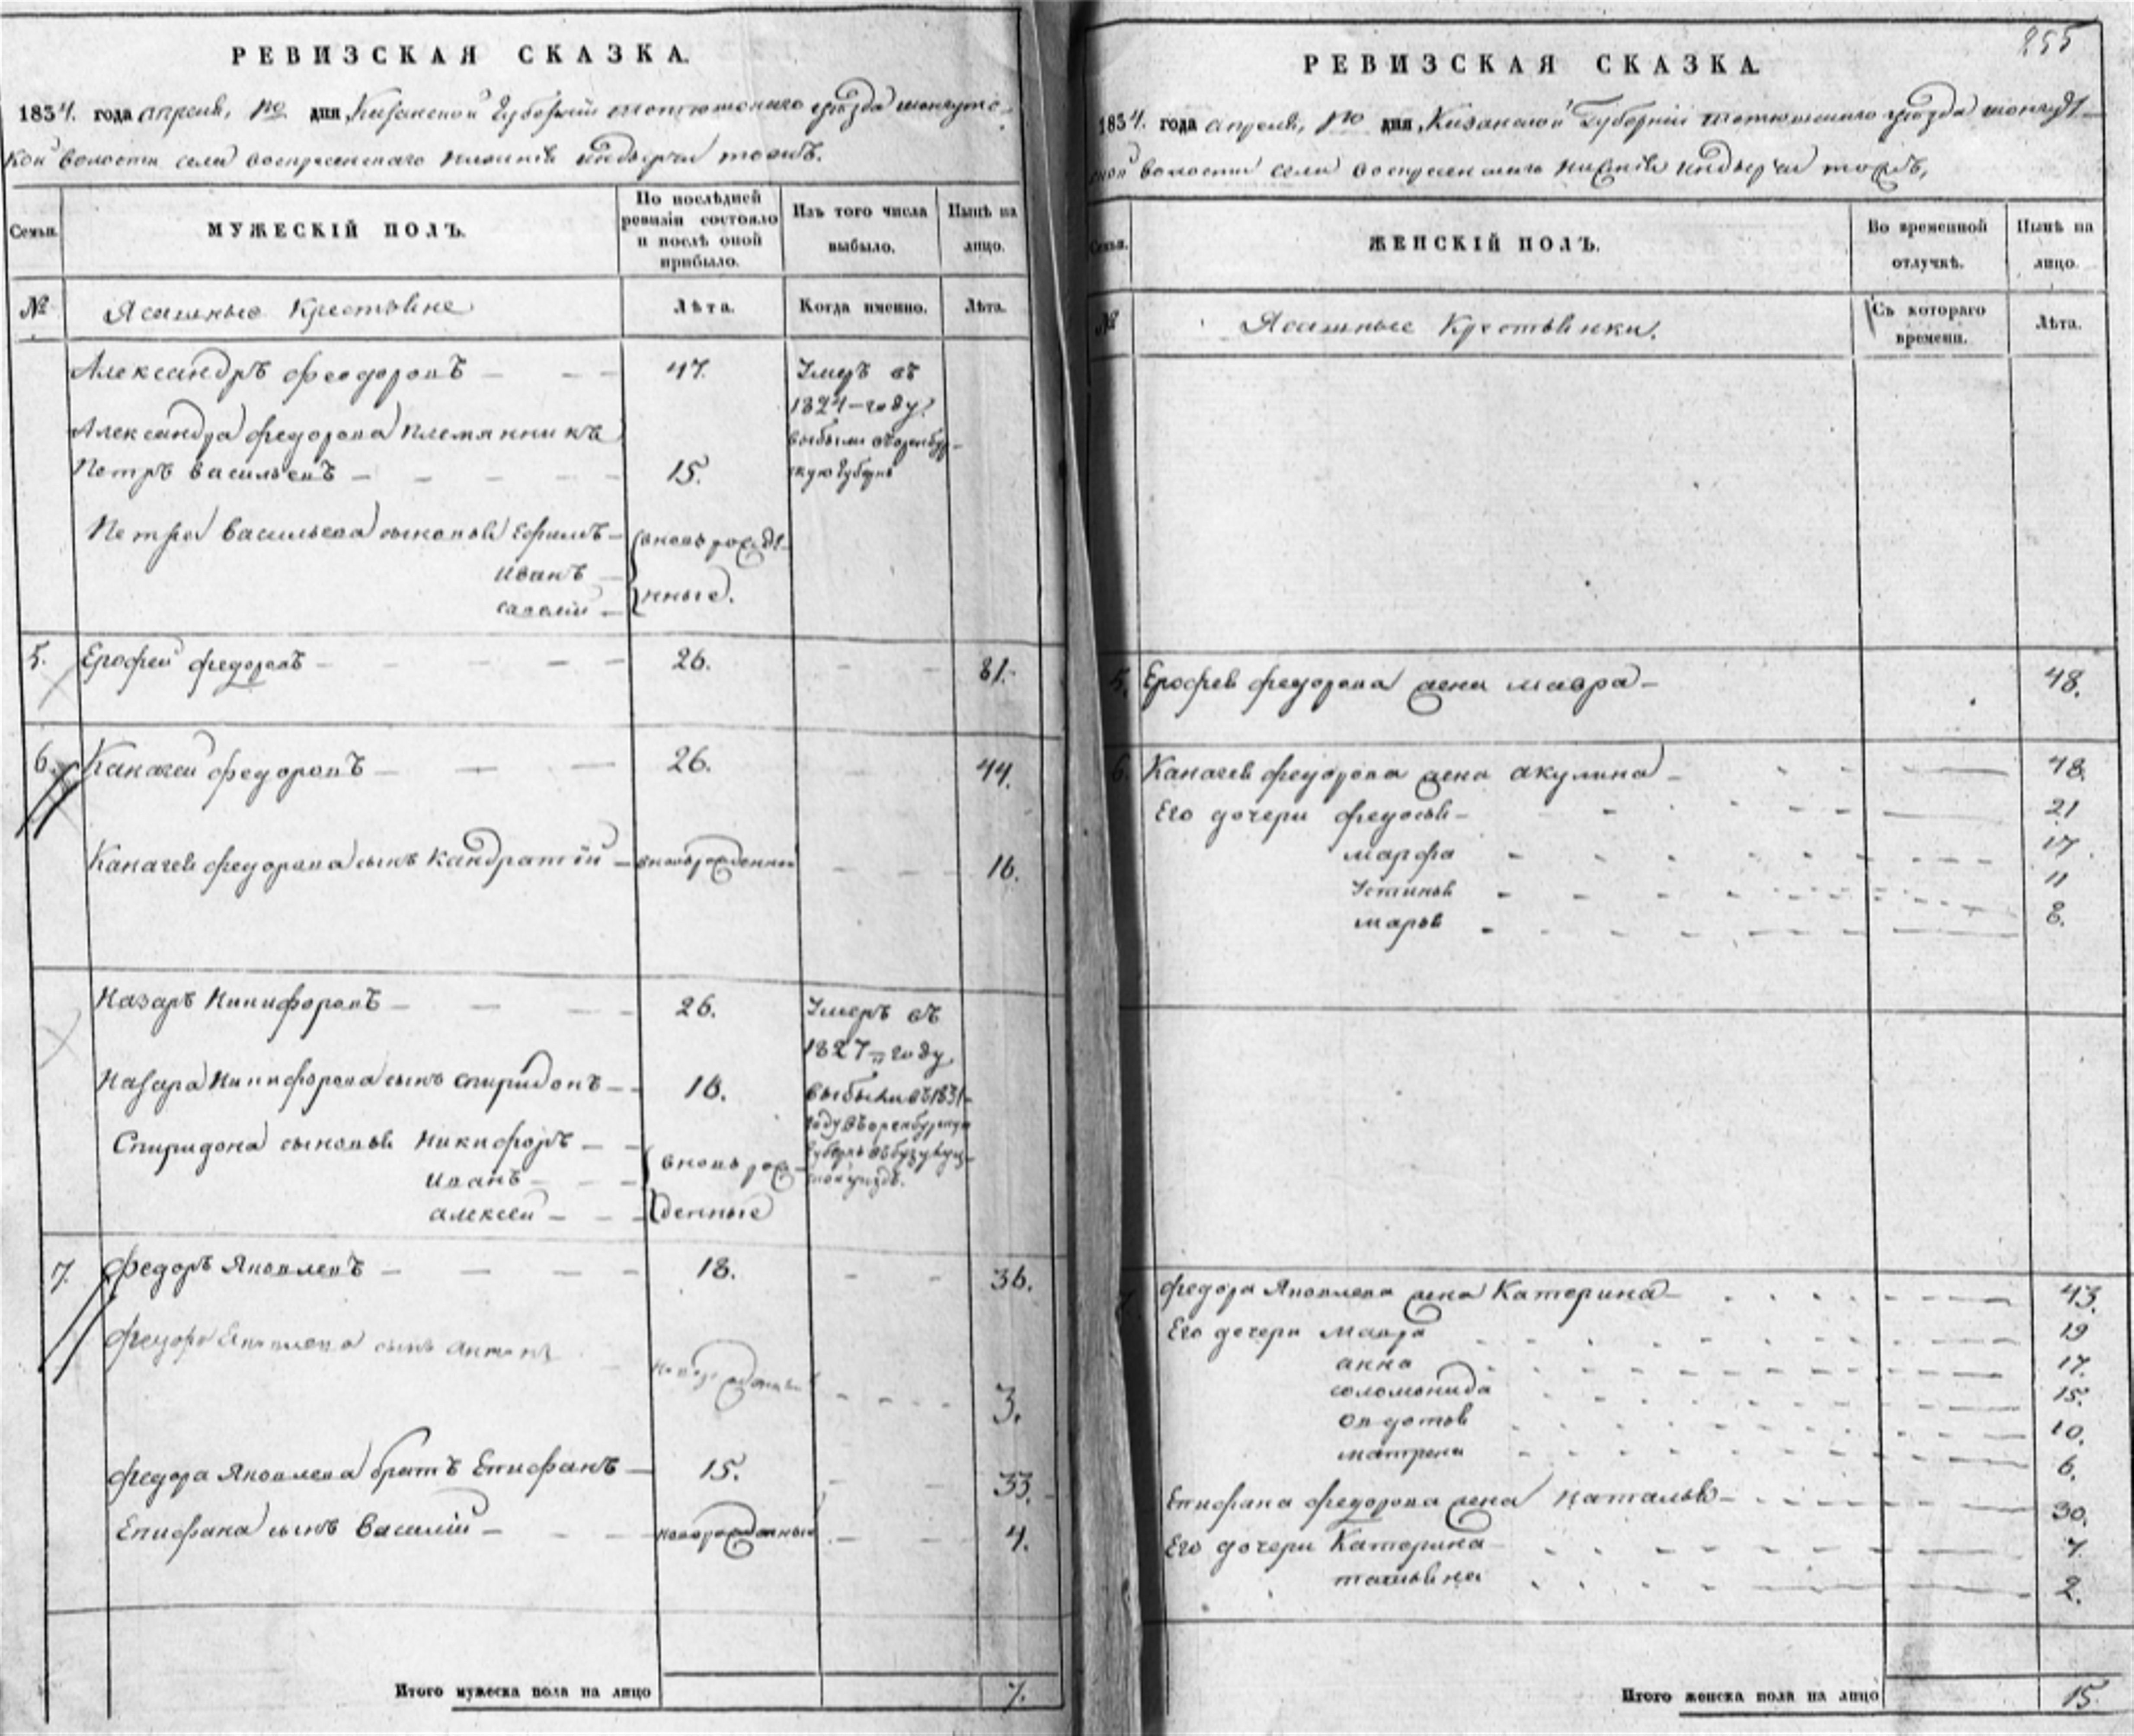 РЕВИЗСКАЯ СКАЗКА.
1834. года апреля, дня Казанской Губернии тетюшскаго уезда
кой волости села воскресенскаго нижній индырчи тожъ.
Семьи.
МУЖЕСКІЙ ПОЛЪ.
По послѣдней ревизіи состояло и послѣ оной прибыло.
Изъ того числа выбыло.
Нынѣ на лицо.
№
Ясашные Крестьяне
Лѣта.
Когда именно.
Лѣта.
Александръ феодоровъ 47. Умеръ въ
1824 году.
Александра федорова племянникъ выбыли
Петръ васильевъ 15.
Петра васильева сыновья Ефимъ вновь рожде
иванъ
савелій нные.
5. Ерофей федоровъ 26.
6. Каначей федоровъ 26. 44.
Каначея федорова сынъ Кандратій вновьрожденный 16.
Назаръ Никифоровъ 26. Умеръ въ
1827 году
Назара Никифорова сынъ спиридонъ 16. выбыли въ 1831
году въ оренбургскую
Спиридона сыновья Никифоръ
иванъ вновь рож
алексей денные
7. федоръ Яковлевъ 18. 36.
федора Яковлева сынъ антонъ новорожденный 3.
федора Яковлева братъ Епифанъ 15. 33.
Епифана сынъ Василій новорожденный 4.
Итого мужеска пола на лицо 7.
255
РЕВИЗСКАЯ СКАЗКА.
1834. года апреля, дня Казанской Губерніи тетюшскаго уезда
ской волости села воскресенскаго нижній индырчи тожъ,
Семьи.
ЖЕНСКІЙ ПОЛЪ.
Во временной отлучкѣ.
Нынѣ на лицо.
№
Ясашные Крестьянки.
Съ котораго времени.
Лѣта.
5. Ерофея федорова жена мавра 48.
6. Каначея федорова жена акулина 48.
Его дочери федосья 21
марфа 17.
Устинья 11
марья 8.
7. федора Яковлева жена Катерина 43.
Его дочери мавра 19
анна 17.
соломонида 15.
овдотья 10.
матрена 6.
Епифана федорова жена наталья 30.
Его дочери Катерина 7.
татьяна 2.
Итого женска пола на лицо 15.